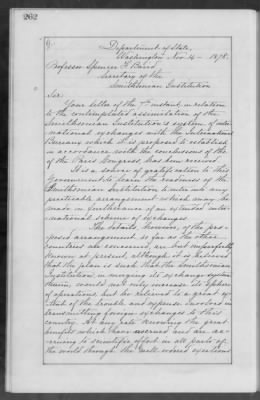 262
Department of State,
Washington Nov. 14 - 1878.
Professor Spencer F. Baird
Secretary of the
Smithsonian Institution
Sir,
Your letter of the 7th instant in relation
to the contemplated assimilation of the
Smithsonian Institution's system of inter-
national exchanges with the International
Bureaux which it is proposed to establish
in accordance with the conclusions of the
of the Paris Congress, has been received.
It is a source of gratification to this
Government to learn the readiness of the
Smithsonian Institution to enter into any
practicable arrangement which may be
made in furtherance of an extended inter-
national scheme of exchanges.
The details, however, of the pro-
posed arrangement, so far as the other
countries are concerned, are but imperfectly
known at present, although it is believed
that the plan is such that the Smithsonian
Institution in merging its exchange system
therein, would not only increase its sphere
of operations, but be relieved to a great ex-
tent of the trouble and expense involved in
transmitting foreign exchanges to this
country. At any rate knowing the great
benefits which have accrued and are ac-
cruing to scientific effort in all parts of
the world through the well-world exertions